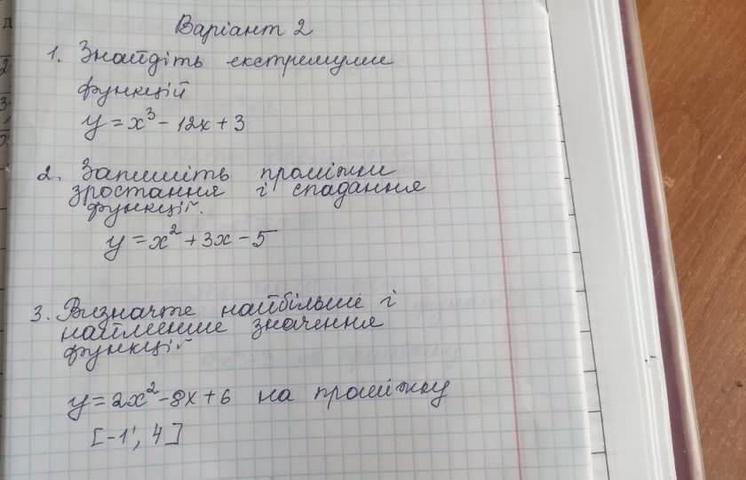 Варіант 2
1. Знайдіть екстремуми
функцій
y = x³ - 12x + 3
2. Запишіть проміжки
зростання і спадання
функції.
y = x² + 3x - 5
3. Визначте найбільше і
найменше значення
функції
y = 2x² - 8x + 6 на проміжку
[-1; 4]